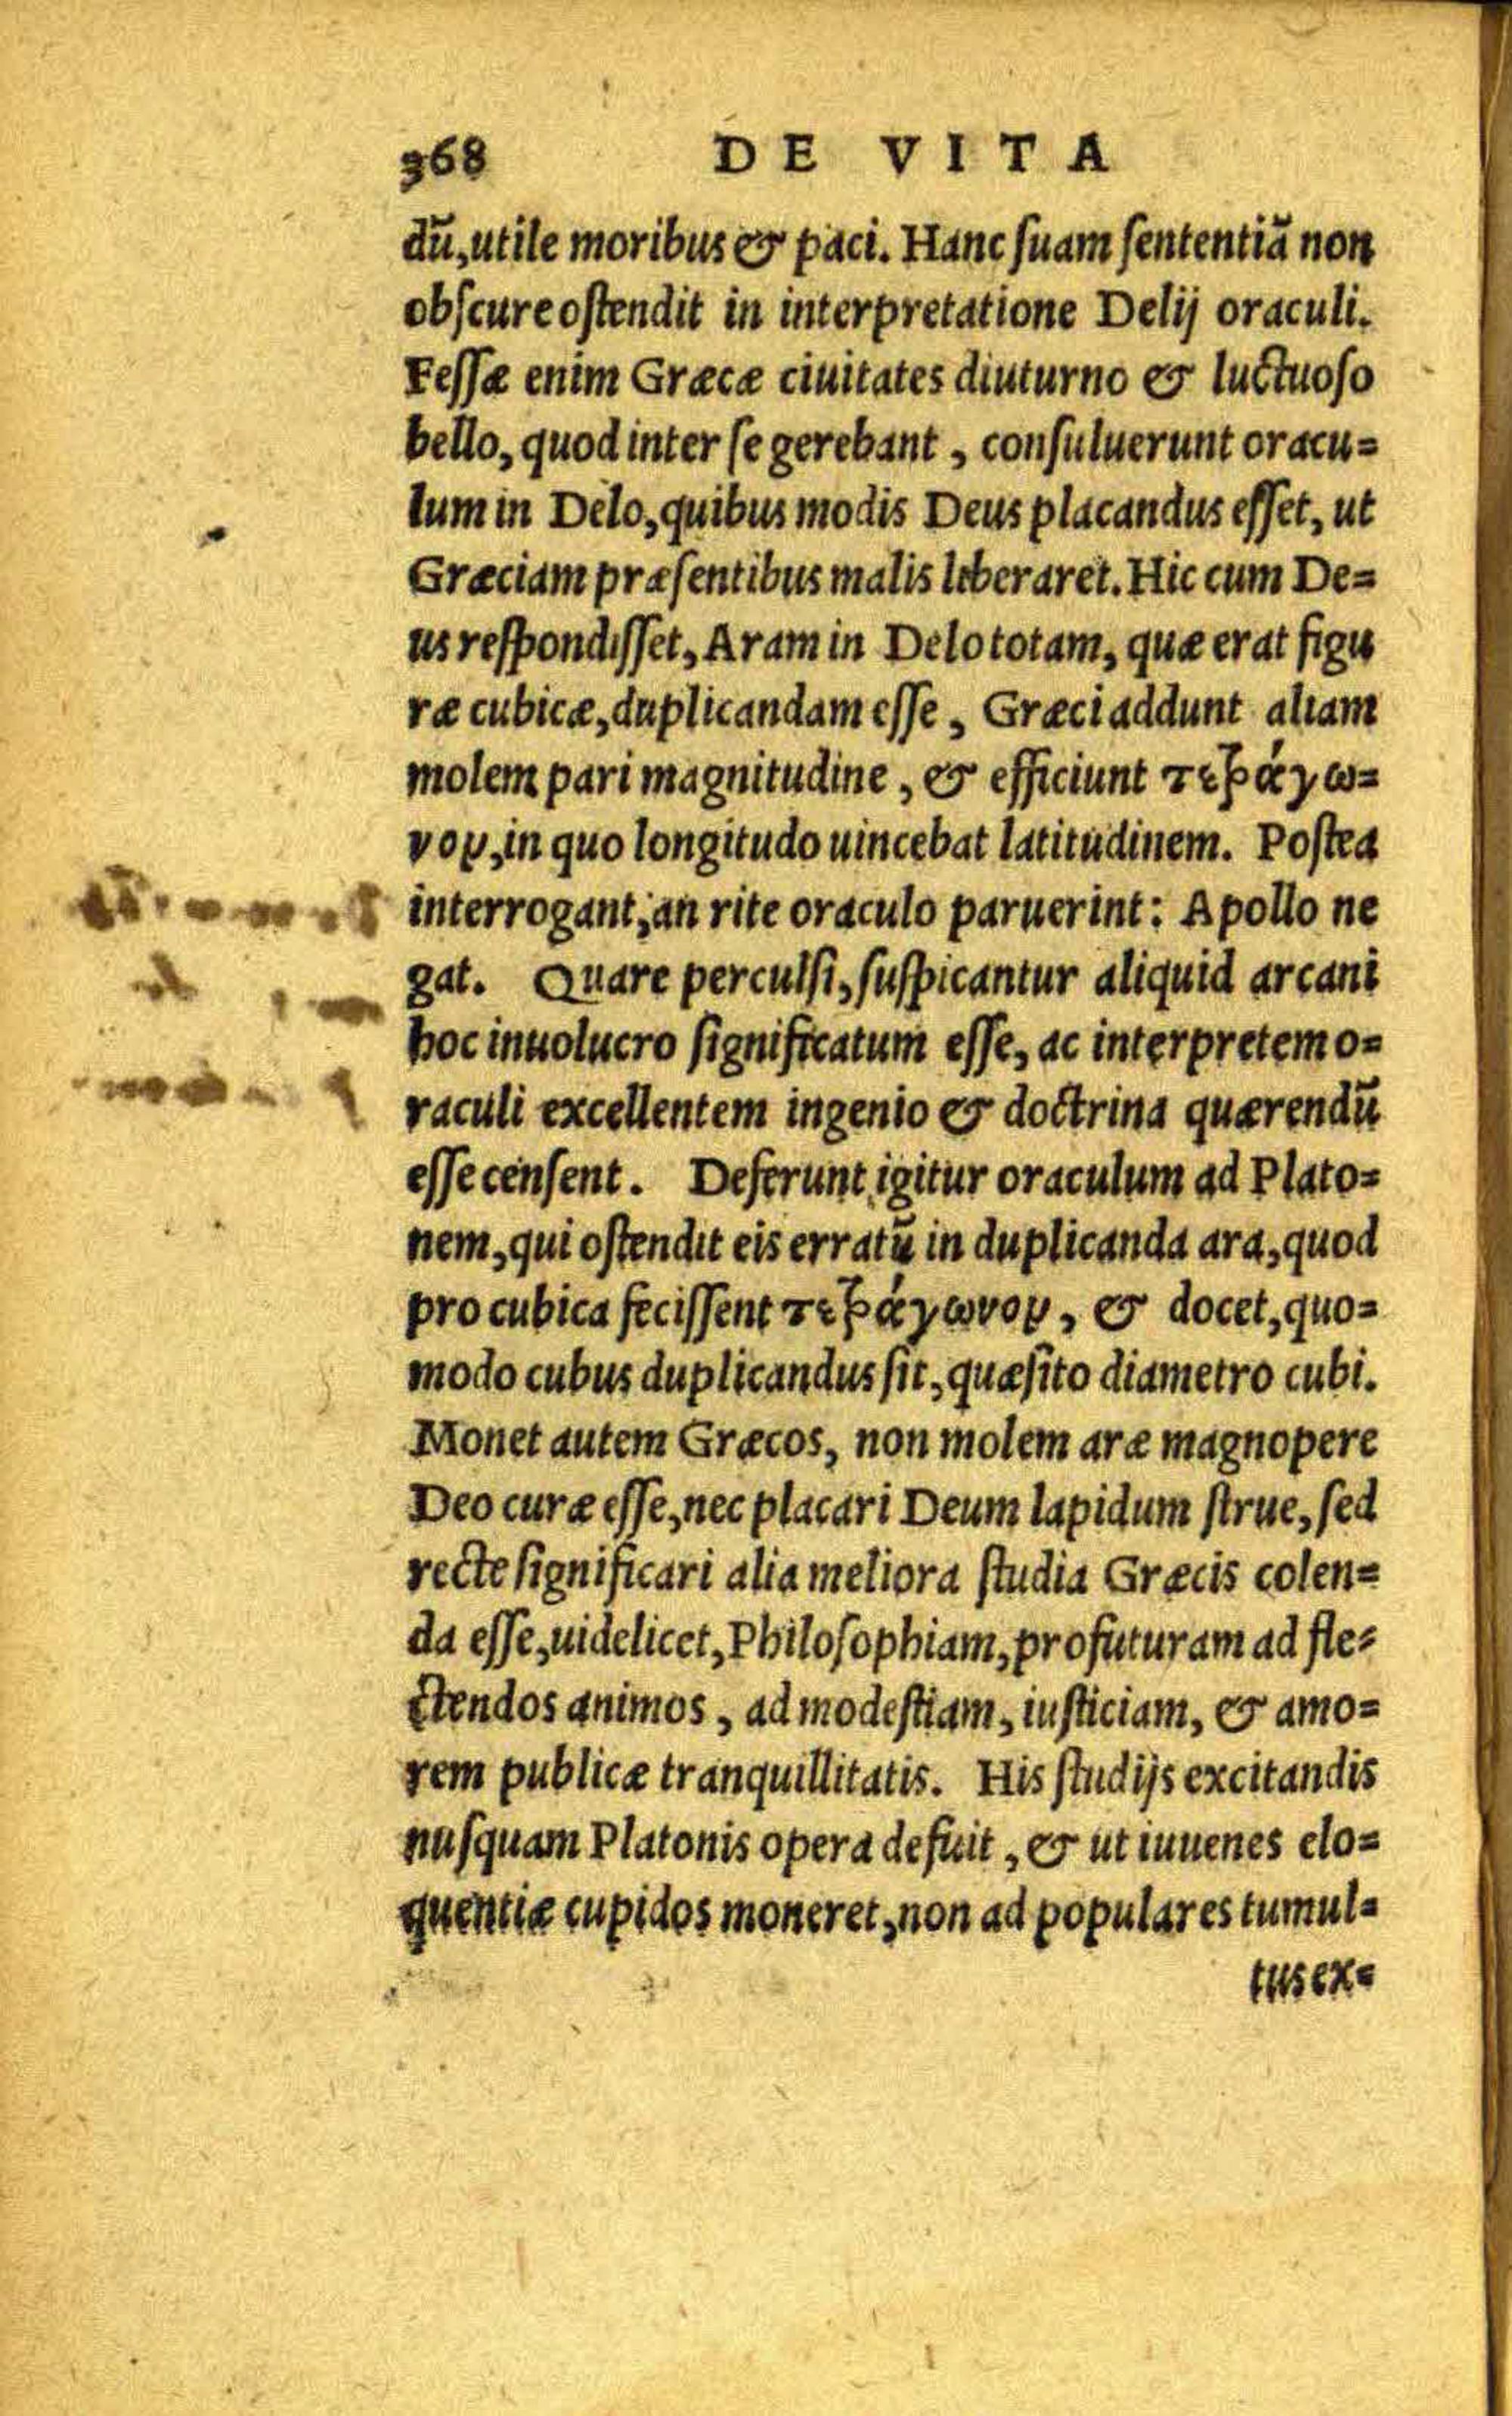 368 DE VITA
dũ,utile moribus & paci. Hanc ſuam ſententiã non
obſcure oſtendit in interpretatione Delij oraculi.
Feſſæ enim Græcæ ciuitates diuturno & luctuoſo
bello, quod inter ſe gerebant, conſuluerunt oracu=
lum in Delo,quibus modis Deus placandus eſſet, ut
Græciam præſentibus malis liberaret. Hic cum De=
us reſpondiſſet, Aram in Delo totam, quæ erat figu
ræ cubicæ,duplicandam eſſe, Græci addunt aliam
molem pari magnitudine, & efficiunt τετράγω=
νον,in quo longitudo uincebat latitudinem. Poſtea
interrogant, an rite oraculo paruerint: Apollo ne
gat. Quare perculſi, ſuſpicantur aliquid arcani
hoc inuolucro ſignificatum eſſe, ac interpretem o=
raculi excellentem ingenio & doctrina quærendũ
eſſe cenſent. Deferunt igitur oraculum ad Plato=
nem,qui oſtendit eis erratũ in duplicanda ara,quod
pro cubica feciſſent τετράγωνον, & docet,quo=
modo cubus duplicandus ſit, quæſito diametro cubi.
Monet autem Græcos, non molem aræ magnopere
Deo curæ eſſe,nec placari Deum lapidum ſtrue, ſed
recte ſignificari alia meliora ſtudia Græcis colen=
da eſſe,uidelicet,Philoſophiam,profuturam ad fle=
ctendos animos, ad modeſtiam, iuſticiam, & amo=
rem publicæ tranquillitatis. His ſtudijs excitandis
nuſquam Platonis opera defuit, & ut iuuenes elo=
quentiæ cupidos moneret,non ad populares tumul=
tus ex=